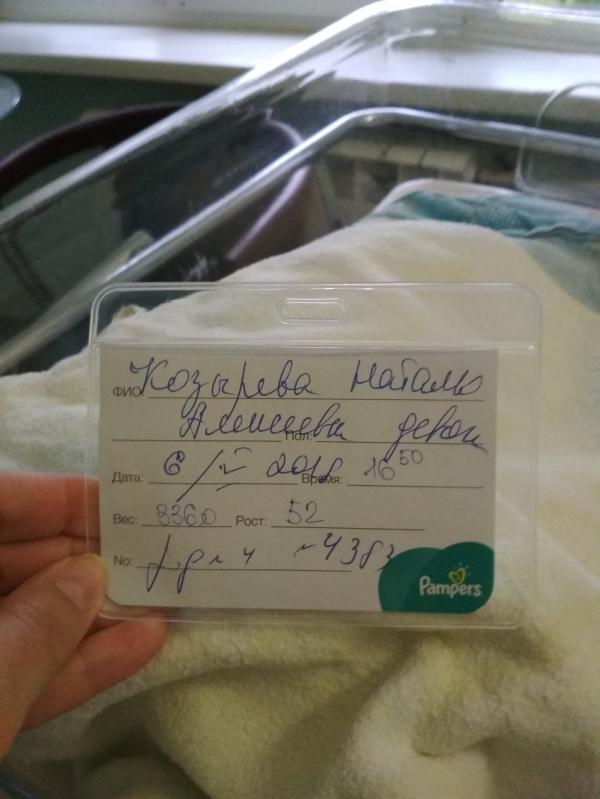 ФИО Козырева Наталья
Алексеевна Пол: девочка
Дата: 6/V 2018 Время: 16 50
Вес: 3360 Рост: 52
No: 4383
Pampers